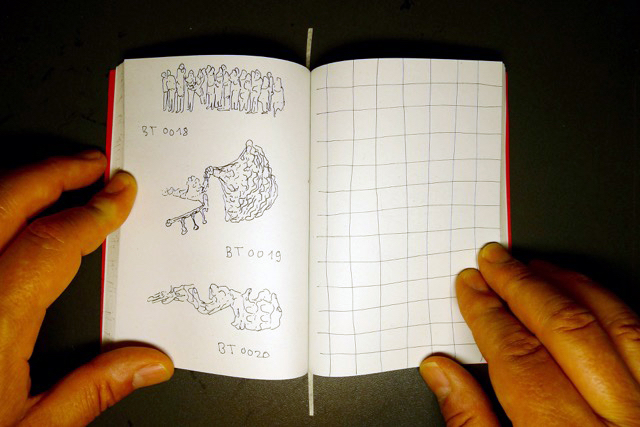 BT 0018
BT 0019
BT 0020